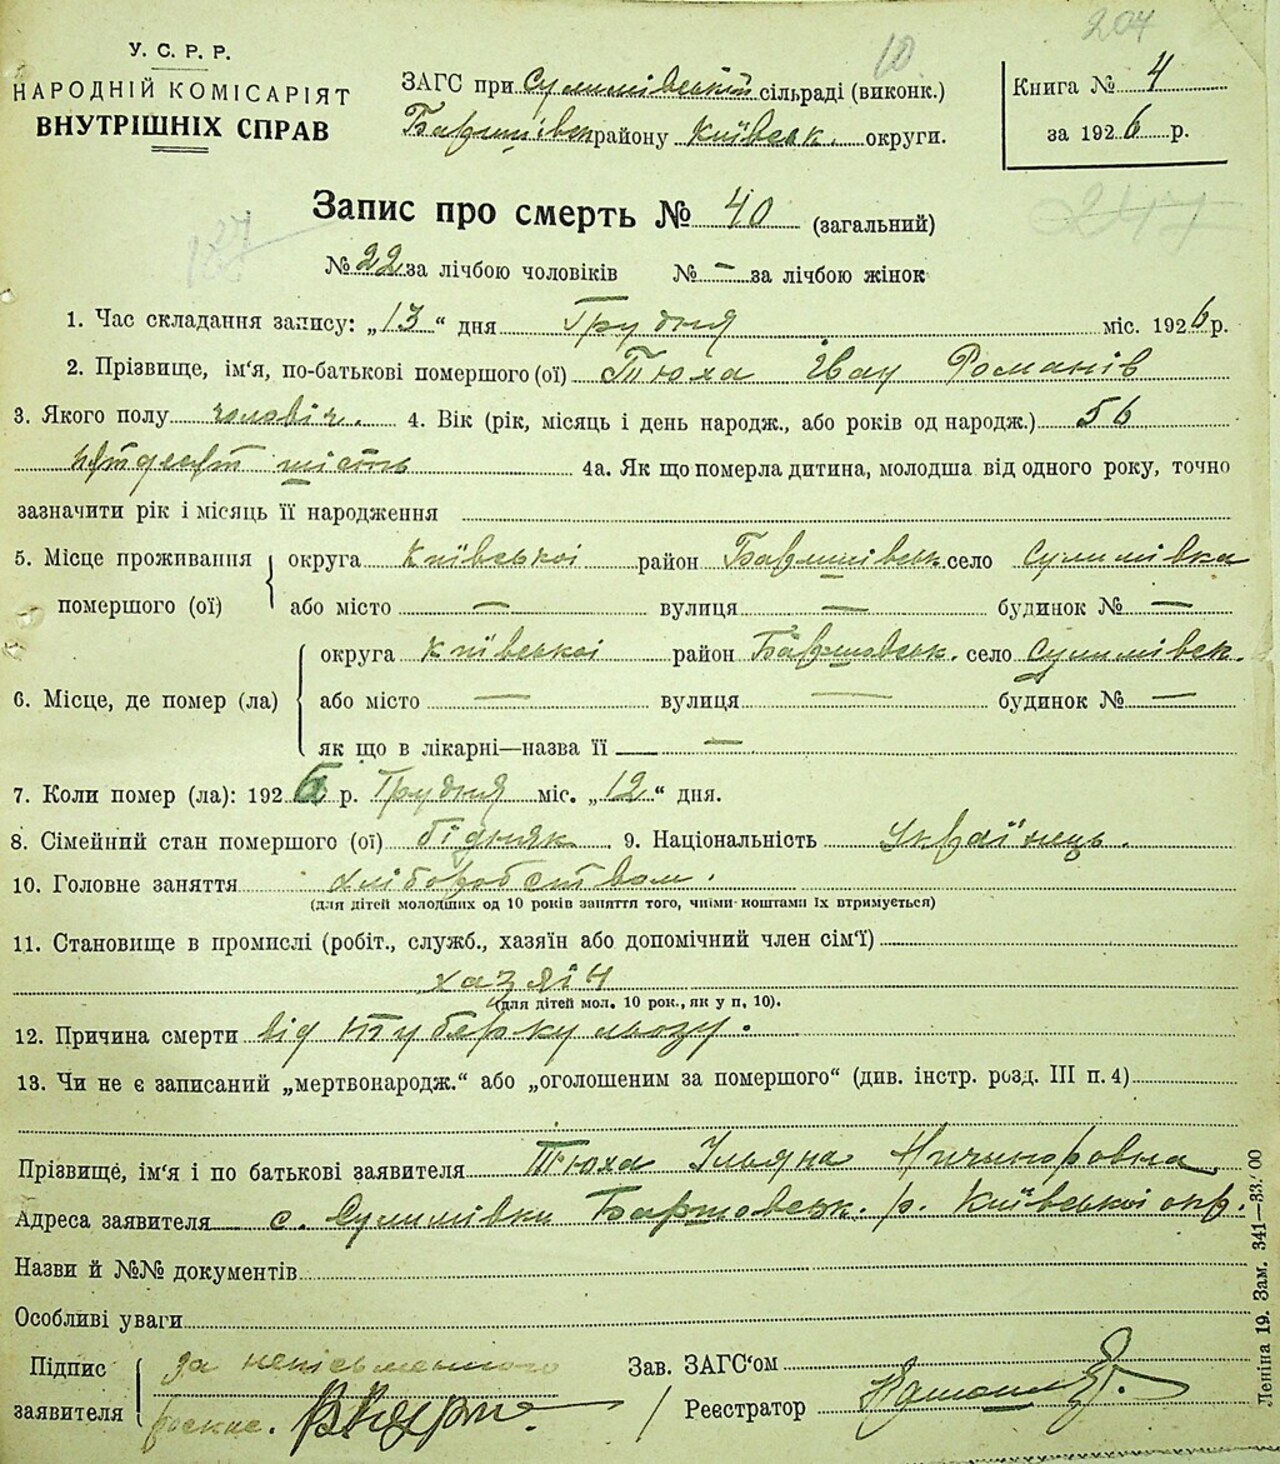 204
У. С. Р. Р.
НАРОДНІЙ КОМІСАРІЯТ
ВНУТРІШНІХ СПРАВ
10
ЗАГС при Сулимівській сільраді (виконк.)
Баришівськ району Київськ. округи.
Книга № 4
за 1926 р.
Запис про смерть № 40 (загальний)
247
№ 22 за лічбою чоловіків № — за лічбою жінок
1. Час складання запису: „13“ дня Грудня міс. 1926 р.
2. Прізвище, ім'я, по-батькові помершого (ої) Тюха Іван Романів
3. Якого полу чоловіч. 4. Вік (рік, місяць і день народж., або років од народж.) 56
пятдесят шість 4а. Як що померла дитина, молодша від одного року, точно
зазначити рік і місяць її народження
5. Місце проживання помершого (ої) округа Київської район Баришівськ. село Сулимівка
або місто — вулиця — будинок № —
6. Місце, де помер (ла) округа Київської район Баршовськ. село Сулимівск.
або місто — вулиця — будинок № —
як що в лікарні—назва її —
7. Коли помер (ла): 1926 р. Грудня міс. „12“ дня.
8. Сімейний стан помершого (ої) бідняк. 9. Національність Українець.
10. Головне заняття хліборобством.
(для дітей молодших од 10 років заняття того, чиїми коштами їх втримується)
11. Становище в промислі (робіт., служб., хазяїн або допомічний член сім'ї)
хазяін
(для дітей мол. 10 рок., як у п, 10).
12. Причина смерти від туберкульозу.
13. Чи не є записаний „мертвонародж.“ або „оголошеним за помершого“ (див. інстр. розд. III п. 4)
Прізвище, ім'я і по батькові заявителя Тюха Ульяна Ничипоровна
Адреса заявителя с. Сулимівки Баршовськ. р. Київської окр.
Назви й №№ документів
Особливі уваги
Підпис заявителя за неписьменного
Зав. ЗАГС'ом
Реєстратор
Леніна 19. Зам. 341—33.00